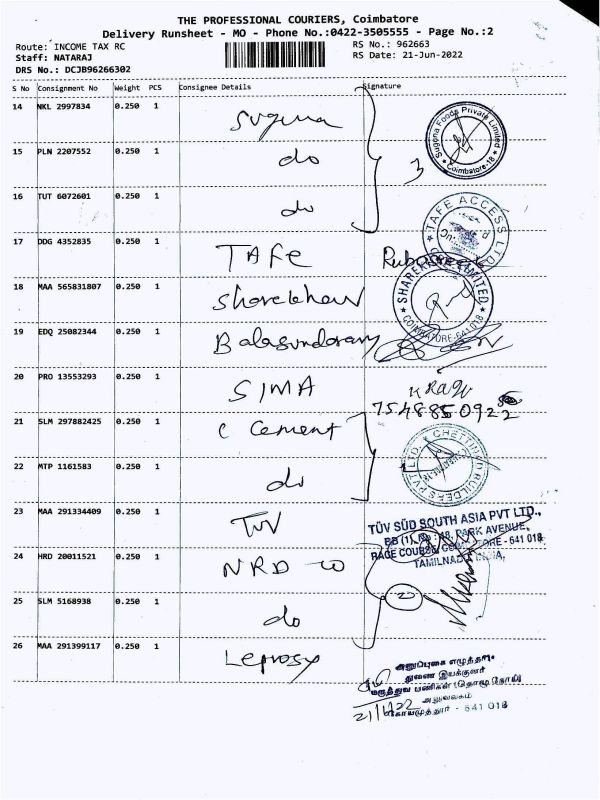 THE PROFESSIONAL COURIERS, Coimbatore
Delivery Runsheet - MO - Phone No.:0422-3505555 - Page No.:2
Route: INCOME TAX RC
RS No.: 962663
Staff: NATARAJ
RS Date: 21-Jun-2022
DRS No.: DCJB96266302
S No Consignment No Weight PCS Consignee Details Signature
14 NKL 2997834 0.250 1 Suguna
Suguna Foods Private Limited
Coimbatore-18
15 PLN 2207552 0.250 1 do
3
16 TUT 6072601 0.250 1 do
TAFE ACCESS LTD
17 DDG 4352835 0.250 1 TAFE
18 MAA 565831807 0.250 1 Sharekhan
SHAREKHAN LIMITED
COIMBATORE-641 018
19 EDQ 25082344 0.250 1 Balasundaram
20 PRO 13553293 0.250 1 SIMA
21 SLM 297882425 0.250 1 C Cement
CHETTINAD BUILDERS PVT LTD
22 MTP 1161583 0.250 1 do
23 MAA 291334409 0.250 1 TUV
TÜV SÜD SOUTH ASIA PVT LTD.,
PARK AVENUE,
RACE COURSE COIMBATORE - 641 018
TAMILNADU INDIA.
24 HRD 20011521 0.250 1 NRD
25 SLM 5168938 0.250 1 do
26 MAA 291399117 0.250 1 Leprosy
துணை இயக்குனர்
மருத்துவ பணிகள் (தொழுநோய்)
அலுவலகம்
கோயமுத்தூர் - 641 018